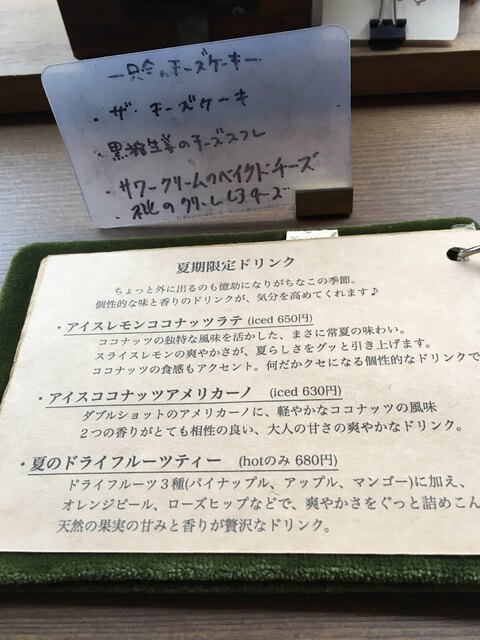 一只今のチーズケーキー
・ザ・チーズケーキ
・黒糖生姜のチーズスフレ
・サワークリームのベイクドチーズ
・桃のクリームレアチーズ
夏期限定ドリンク
ちょっと外に出るのも億劫になりがちなこの季節。
個性的な味と香りのドリンクが、気分を高めてくれます♪
・アイスレモンココナッツラテ (iced 650円)
ココナッツの独特な風味を活かした、まさに常夏の味わい。
スライスレモンの爽やかさが、夏らしさをグッと引き上げます。
ココナッツの食感もアクセント。何だかクセになる個性的なドリンクで
・アイスココナッツアメリカーノ (iced 630円)
ダブルショットのアメリカーノに、軽やかなココナッツの風味
２つの香りがとても相性の良い、大人の甘さの爽やかなドリンク。
・夏のドライフルーツティー (hotのみ 680円)
ドライフルーツ３種(パイナップル、アップル、マンゴー)に加え、
オレンジピール、ローズヒップなどで、爽やかさをぐっと詰めこん
天然の果実の甘みと香りが贅沢なドリンク。